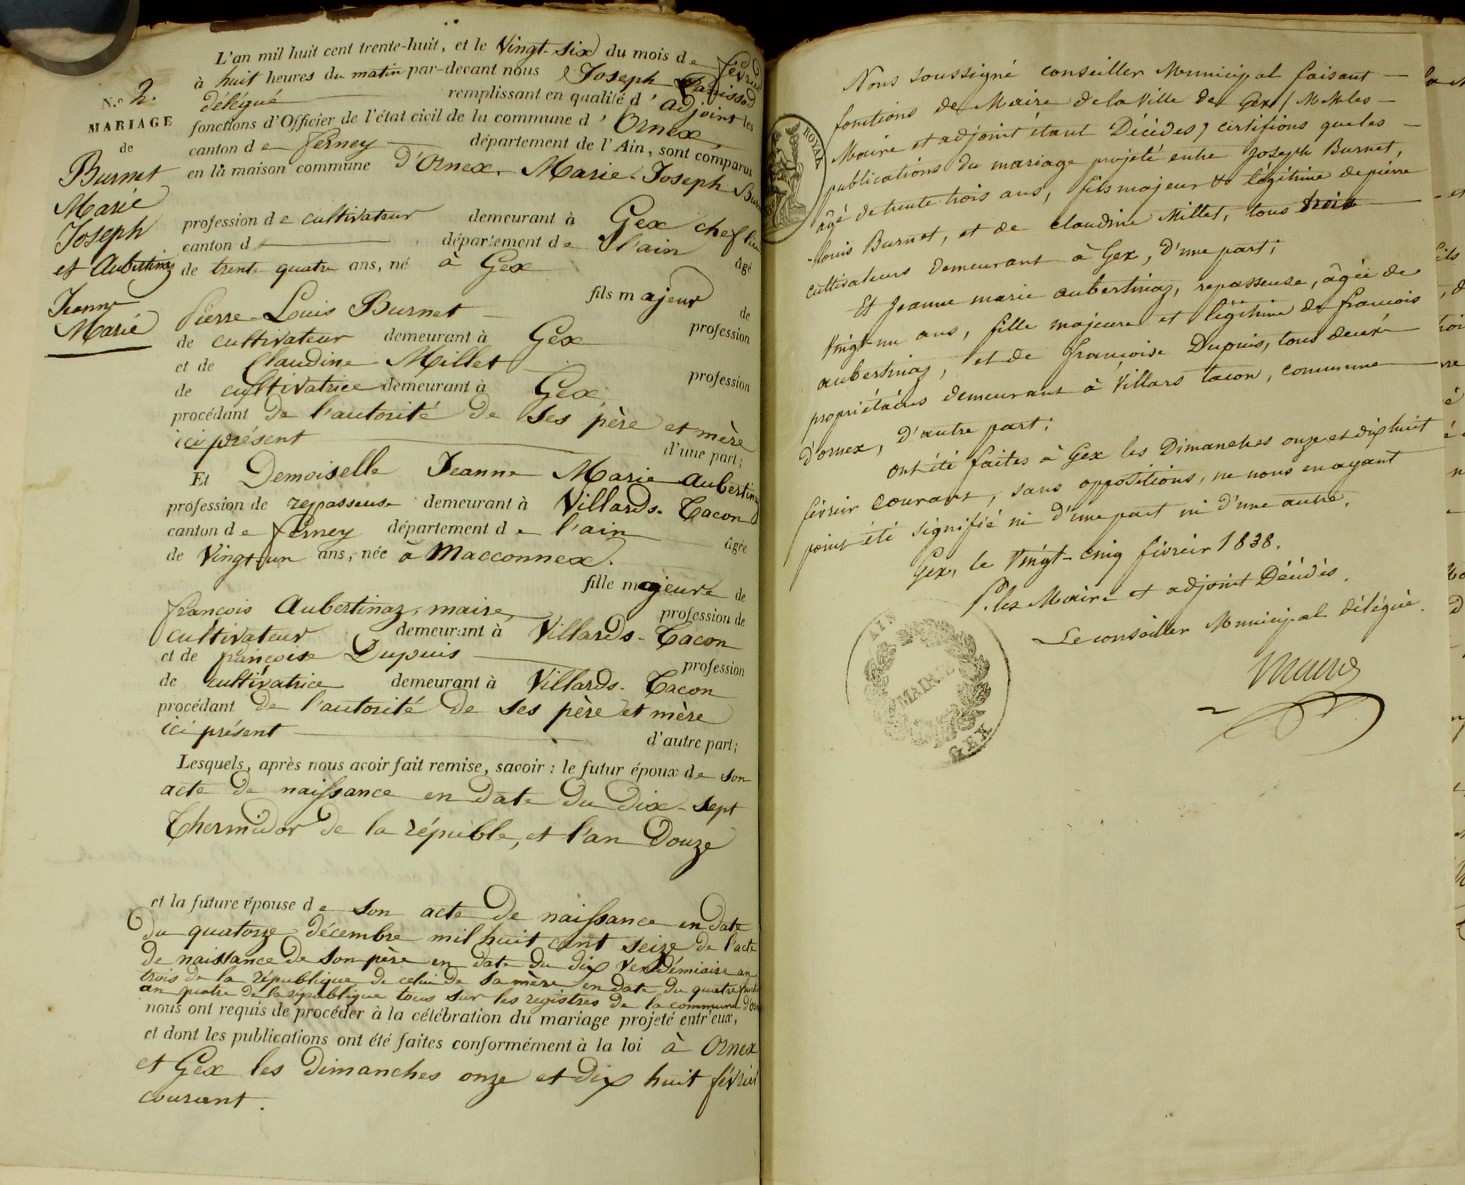 L'an mil huit cent trente-huit, et le Vingt-six du mois de février
à huit heures du matin par-devant nous Joseph Panissod
délégué remplissant en qualité d'adjoint les
fonctions d'Officier de l'état civil de la commune d'Ornex,
canton de ferney département de l'Ain, sont comparus
en la maison commune d'Ornex. Marie-Joseph Burnet
N.o 2.
MARIAGE
de
Burnet
Marie
Joseph
et Aubertinaz
Jeanne
Marie
profession de cultivateur demeurant à Gex chef lieu
canton d département de l'ain âgé
de trente quatre ans, né à Gex
fils majeur de
Pierre-Louis Burnet profession
de cultivateur demeurant à Gex
et de Claudine Millet profession
de cultivatrice demeurant à Gex,
procédant de l'autorité de ses père et mère
ici présent d'une part;
Et Demoiselle Jeanne Marie Aubertinaz
profession de repasseuse demeurant à Villards-Tacon
canton de ferney département de l'ain âgée
de Vingt-un ans, née à Macconnex.
fille majeure de
françois Aubertinaz, maire, profession de
cultivateur demeurant à Villards-Tacon
et de françoise Dupuis profession
de cultivatrice demeurant à Villards-Tacon
procédant de l'autorité de ses père et mère
ici présent d'autre part;
Lesquels, après nous avoir fait remise, savoir: le futur époux de son
acte de naissance en date du dix-sept
Thermidor de la républe, et l'an Douze
et la future épouse de son acte de naissance en date
du quatorze décembre mil huit cent seize de l'acte
de naissance de son père en date du dix Vendémiaire an
trois de la république de celui de sa mère en date du quatre
an quatre de la république tous sur les registres de la commune d'Ornex
nous ont requis de procéder à la célébration du mariage projeté entr'eux,
et dont les publications ont été faites conformément à la loi à Ornex
et Gex les dimanches onze et dix huit février
courant.
ROYAL
Nous soussigné conseiller Municipal faisant
fonctions de Maire de la Ville de Gex (MM. les
Maire et adjoint étant Décédés) certifions que les
publications du mariage projeté entre Joseph Burnet,
âgé de trente trois ans, fils majeur & légitime de pierre
louis Burnet, et de claudine Millet, tous trois
cultivateurs demeurant à Gex, d'une part;
Et Jeanne marie aubertinaz, repasseuse, âgée de
vingt-un ans, fille majeure et légitime de françois
aubertinaz, et de françoise Dupuis, tous deux
propriétaires demeurant à Villars tacon, commune
d'ornex, d'autre part;
ont été faites à Gex les Dimanches onze et dix huit
février courant, sans oppositions, ne nous en ayant
point été signifié ni d'une part ni d'une autre.
Gex, le Vingt-cinq février 1838.
Pr. les Maire et adjoint Décédés.
Le conseiller Municipal délégué.
AIN
MAIRIE
GEX